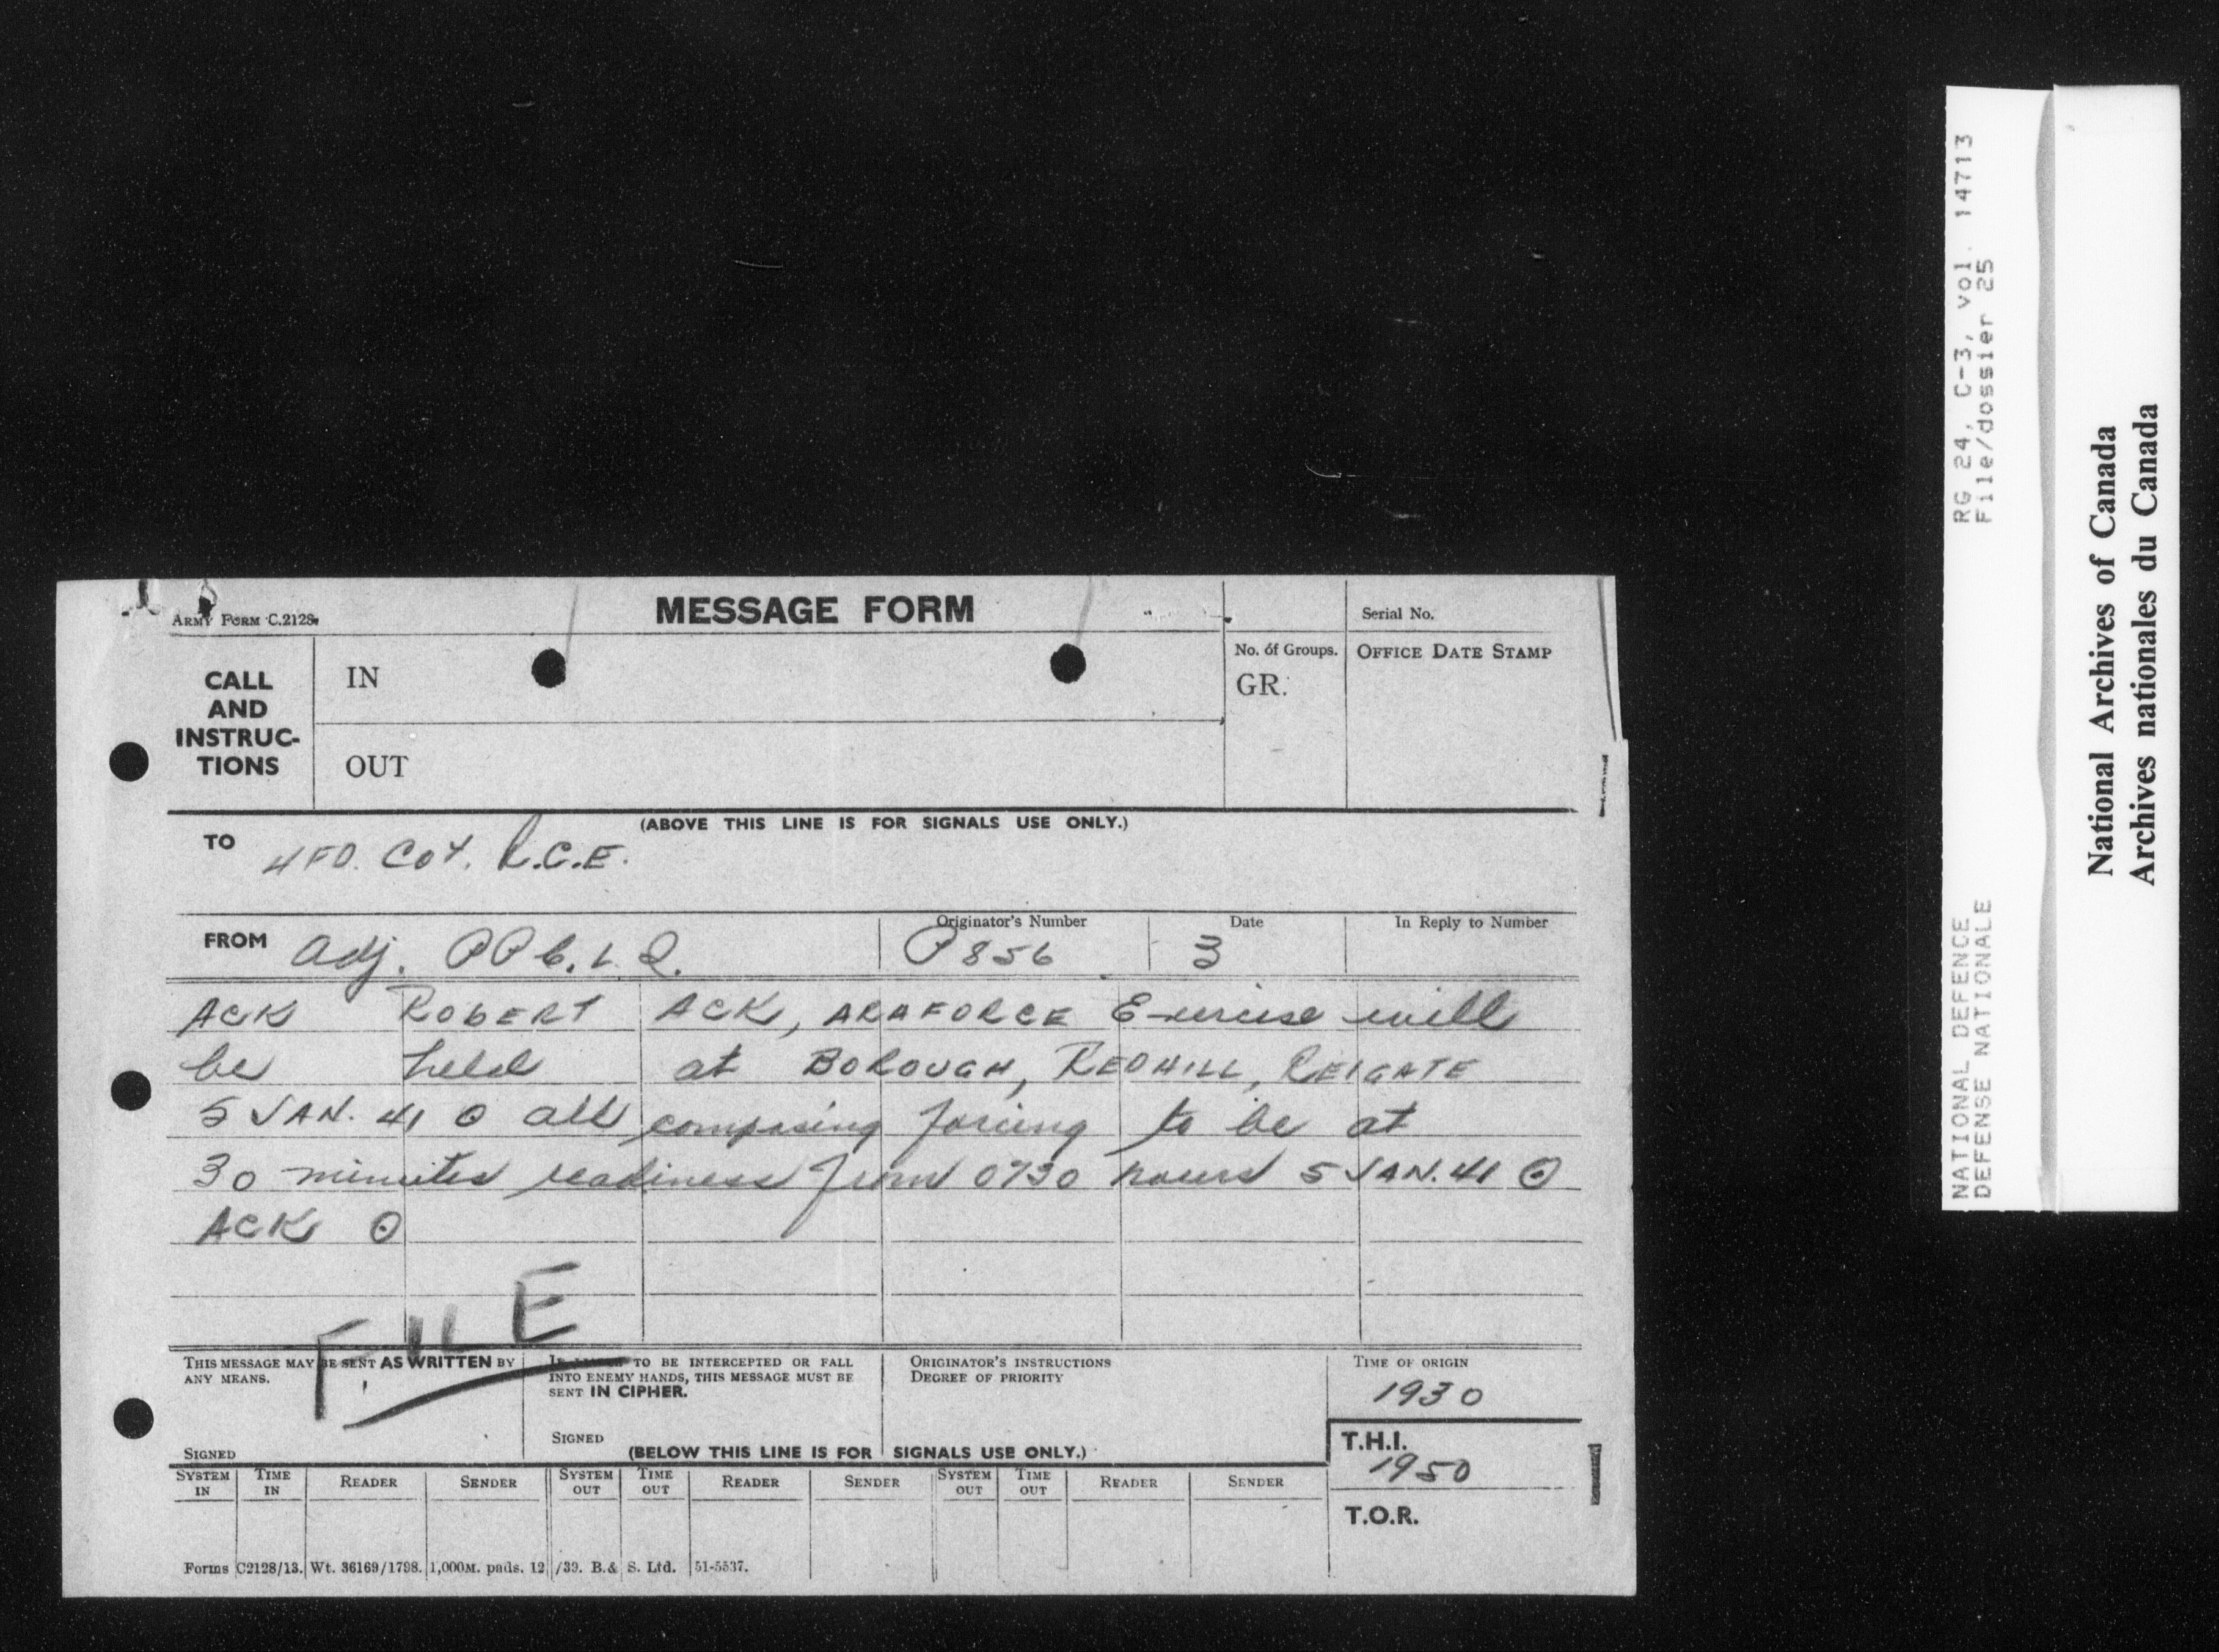 ARMY FORM C.2128.
MESSAGE FORM
Serial No.
CALL AND INSTRUC-TIONS
IN
OUT
No. of Groups.
GR.
OFFICE DATE STAMP
(ABOVE THIS LINE IS FOR SIGNALS USE ONLY.)
TO 4 FD. COY. R.C.E.
FROM Adj. PPC.L.I.
Originator's Number
P856
Date
3
In Reply to Number
ACK ROBERT ACK, ARAFORCE Exercise will
be held at BOROUGH, REDHILL, REIGATE
5 JAN. 41 ⊙ all composing forcing to be at
30 minutes readiness from 0730 hours 5 JAN. 41 ⊙
ACK ⊙
FILE
THIS MESSAGE MAY BE SENT AS WRITTEN BY
ANY MEANS.
SIGNED
TO BE INTERCEPTED OR FALL
INTO ENEMY HANDS, THIS MESSAGE MUST BE
SENT IN CIPHER.
SIGNED
ORIGINATOR'S INSTRUCTIONS
DEGREE OF PRIORITY
TIME OF ORIGIN
1930
T.H.I.
1950
T.O.R.
(BELOW THIS LINE IS FOR SIGNALS USE ONLY.)
SYSTEM IN TIME IN READER SENDER SYSTEM OUT TIME OUT READER SENDER SYSTEM OUT TIME OUT READER SENDER
Forms C2128/13. Wt. 36169/1798. 1,000M. pads. 12/39. B.& S. Ltd. 51-5537.
NATIONAL DEFENCE RG 24, C-3, vol. 14713
DEFENSE NATIONALE File/dossier 25
National Archives of Canada
Archives nationales du Canada